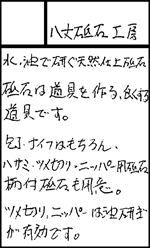 八丈砥石工房
水、油で研ぐ天然仕上砥石
砥石は道具を作る、良くする
道具です。
包丁・ナイフはもちろん、
ハサミ・ツメ切り・ニッパー用砥石
柄付砥石も用意。
ツメ切り、ニッパーは油研ぎ
が有効です。